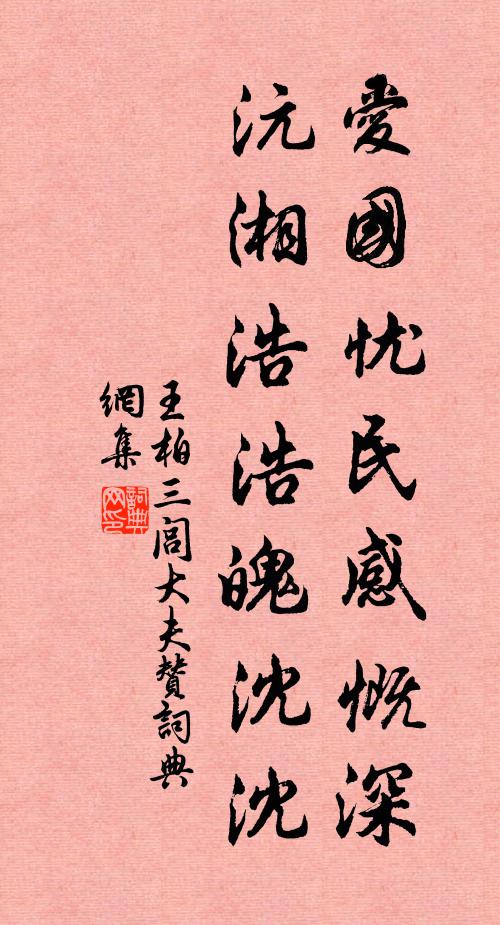 愛國忧民感慨深
沅湘浩浩魄沈沈
王柏三閭大夫贊詞典
網集
詞典
网印